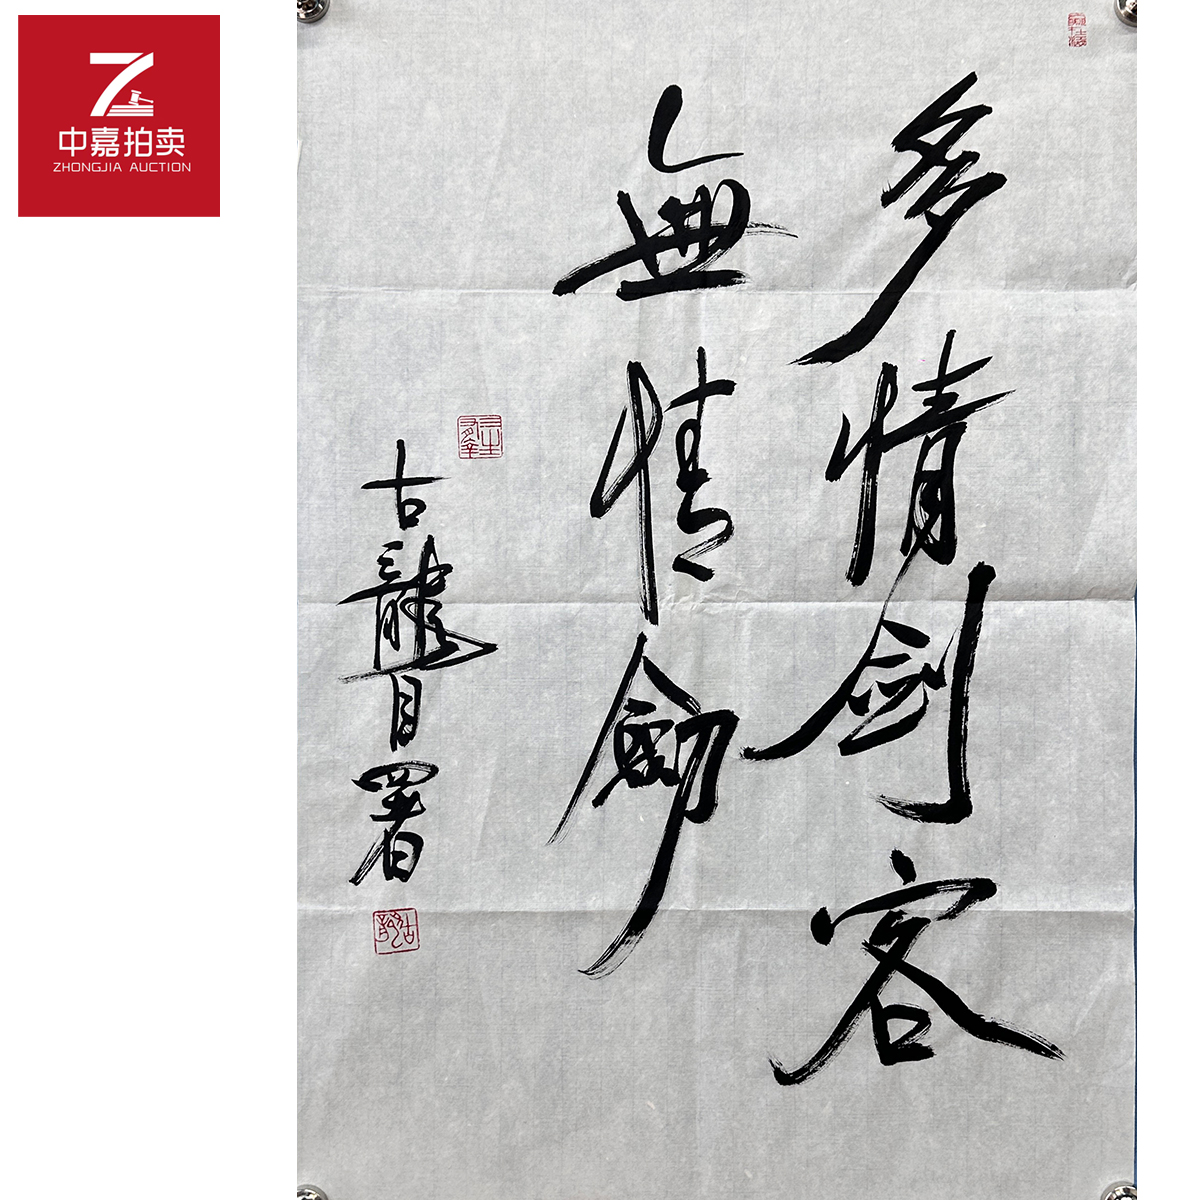 中嘉拍卖
ZHONGJIA AUCTION
多情剑客
無情劍
古龍自署